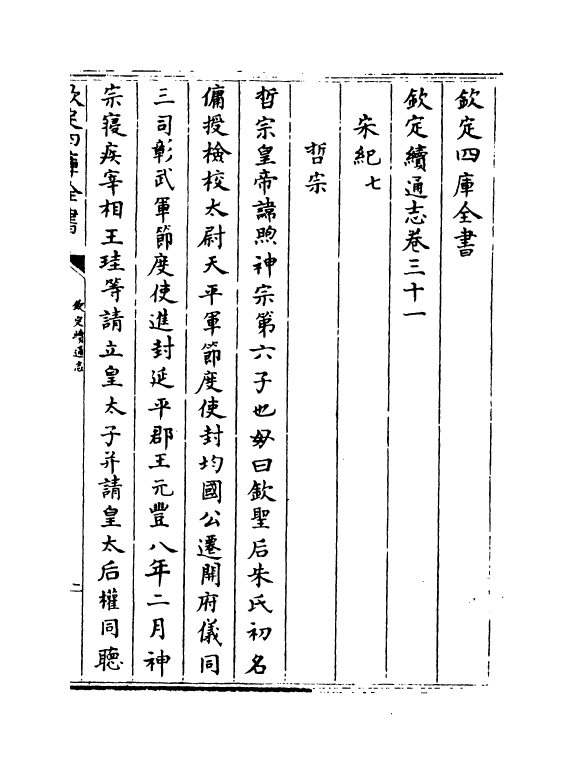 欽定四庫全書
欽定續通志卷三十一
宋紀七
哲宗
哲宗皇帝諱煦神宗第六子也母曰欽聖后朱氏初名
傭授檢校太尉天平軍節度使封均國公遷開府儀同
三司彰武軍節度使進封延平郡王元豐八年二月神
宗寢疾宰相王珪等請立皇太子并請皇太后權同聽
欽定四庫全書
欽定續通志
二